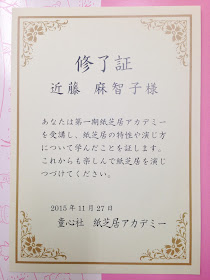 修了証
近藤 麻智子様
あなたは第一期紙芝居アカデミー
を受講し、紙芝居の特性や演じ方
について学んだことを証します。
これからも楽しんで紙芝居を演じ
つづけてください。
2015年11月27日
童心社 紙芝居アカデミー